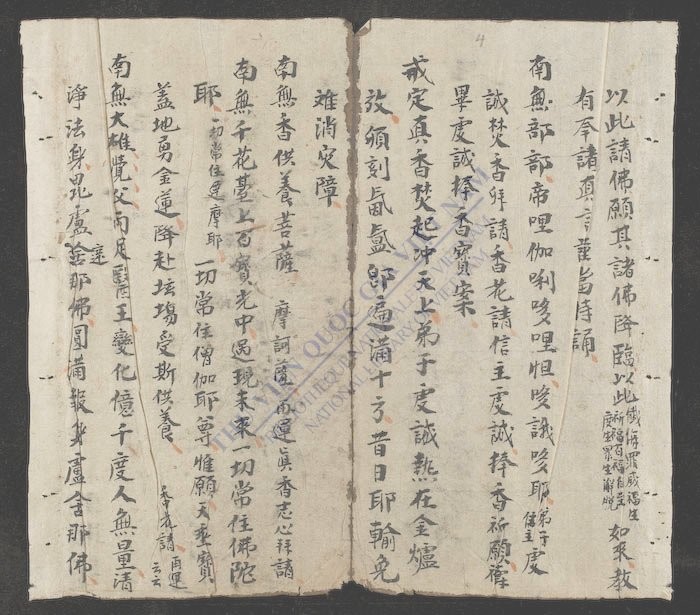 4
以此請佛願其諸佛降臨以此懺悔罪咸福生祈福百福自至度生眾生解脫如來教
有奉請真言謹當持誦
南無部部帝哩伽唎哆哩怛哆誐哆耶弟子信主虔
誠焚香拜請香花請信主虔誠捧香祈願薩
畢虔誠捧香寶案
戒定真香焚起冲天上弟子虔誠熱在金爐
放頒刻氤氳即遍滿十方昔日耶輸免
难消灾障
南無香供養菩薩 摩訶薩再運真香志心拜請
南無千花臺上百寶光中過現未來一切常住佛陀
耶一切常住達摩耶一切常住僧伽耶尊惟願天垂寶
盖地勇金蓮降赴坛塲受斯供養香花請再運云云
南無大雄覺父两足醫王變化億千度人無量清
淨法身毘盧遮舍那佛圓满報身盧舍那佛
THƯ VIỆN QUỐC GIA VIỆT NAM
BIBLIOTHÈQUE NATIONALE DU VIETNAM
NATIONAL LIBRARY OF VIETNAM